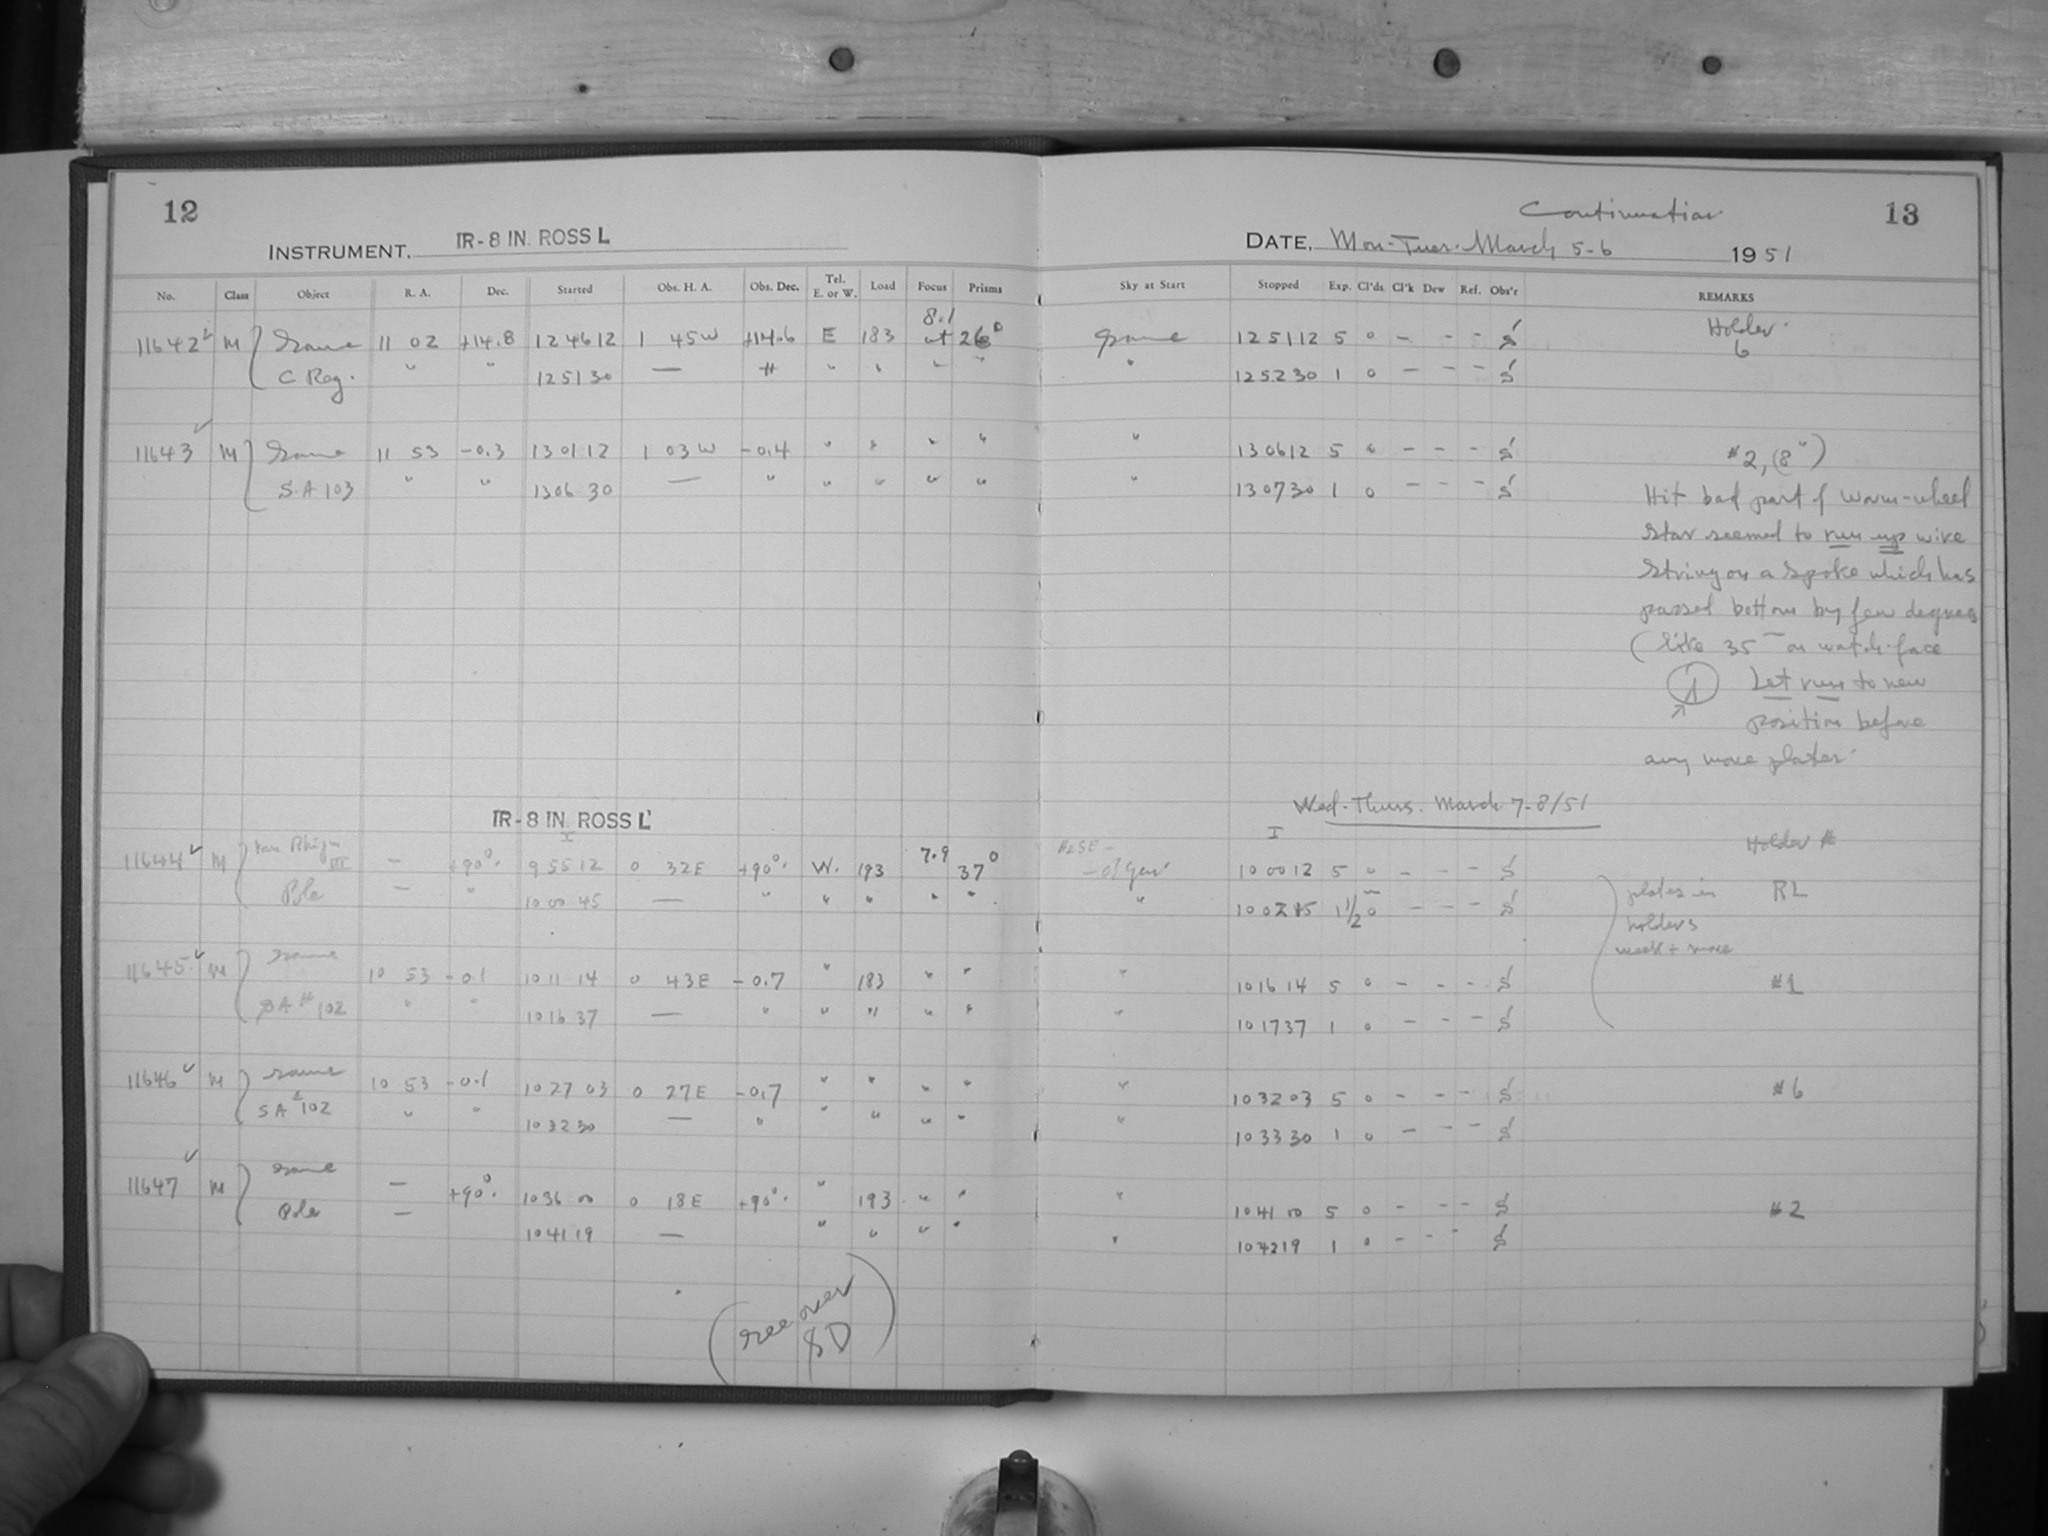 12
INSTRUMENT. IR-8 IN. ROSS L
No. Class Object R. A. Dec. Started Obs. H. A. Obs. Dec. Tel. E. or W. Load Focus Prisms
8.1
11642 M Same 11 02 +14.8 12 46 12 1 45W +14.6 E 183 at 26°
C Reg. " " 12 51 30 — " " " "
11643 M Same 11 53 -0.3 13 01 12 1 03 W -0.4 " " " "
S.A 103 " " 13 06 30 — " " " " "
IR-8 IN. ROSS L
I
11644 M III — +90°. 9 55 12 0 32E +90°. W. 193 7.9 37°
Pole — " 10 00 45 — " " " " "
11645 M Same 10 53 -0.1 10 11 14 0 43E -0.7 " 183 " "
SA # 102 " " 10 16 37 — " " " " "
11646 M Same 10 53 -0.1 10 27 03 0 27E -0.7 " " " "
SA # 102 " " 10 32 30 — " " " " "
11647 M Same — +90°. 10 36 00 0 18E +90°. " 193 " "
Pole — 10 41 19 — " " " "
(see over
8D)
Continuation
13
DATE, Mon-Tues. March 5-6 1951
Sky at Start Stopped Exp. Cl'ds Cl'k Dew Ref. Obs'r REMARKS
Same 12 51 12 5 0 — — — S Holder
6
" 12 52 30 1 0 — — — S
" 13 06 12 5 " — — — S #2, (8")
" 13 07 30 1 0 — — — S
Hit bad part of worm-wheel
Star seemed to run up wire
String on a spoke which has
passed bottom by few degrees
(like 35 on watch-face
1 Let run to new
position before
any more plates.
Wed-Thurs. March 7-8/51
I
Holder #
10 00 12 5 0 - - - S
" 1 1/2 0 - - - S plates in RL
holders
week + more
" 10 16 14 5 0 - - - S #1
" 10 17 37 1 0 - - - S
" 10 32 03 5 0 - - - S #6
" 10 33 30 1 0 - - - S
" 10 41 00 5 0 - - - S #2
" 10 42 19 1 0 - - - S